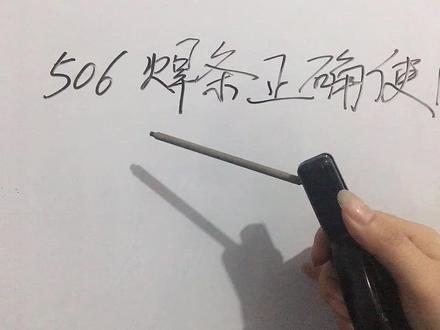 506焊条正确使